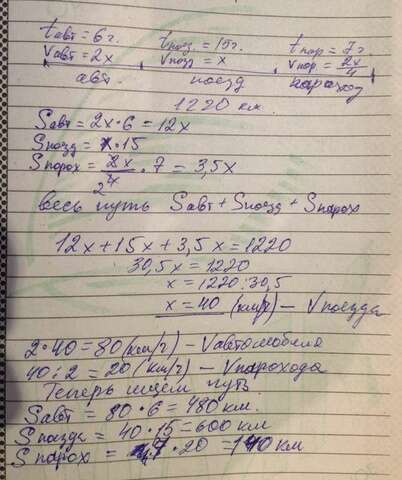 tавт=6ч. tпоез.=15ч. tпар=7ч
Vавт=2x Vпоез=x Vпар.=2x/4
авт. поезд пароход
1220 км.
Sавт=2x·6=12x
Sпоезд=x·15
Sпорох=2x/4·7=3,5x
2
весь путь Sавт+Sпоезд+Sпарох
12x+15x+3,5x=1220
30,5x=1220
x=1220:30,5
x=40 (км/ч) – Vпоезда
2·40=80(км/ч)–Vавтомобиля
40:2=20(км/ч)–Vпарохода
Теперь ищем путь
Sавт=80·6=480 км.
Sпоезда=40·15=600 км
Sпорох=7·20=140 км